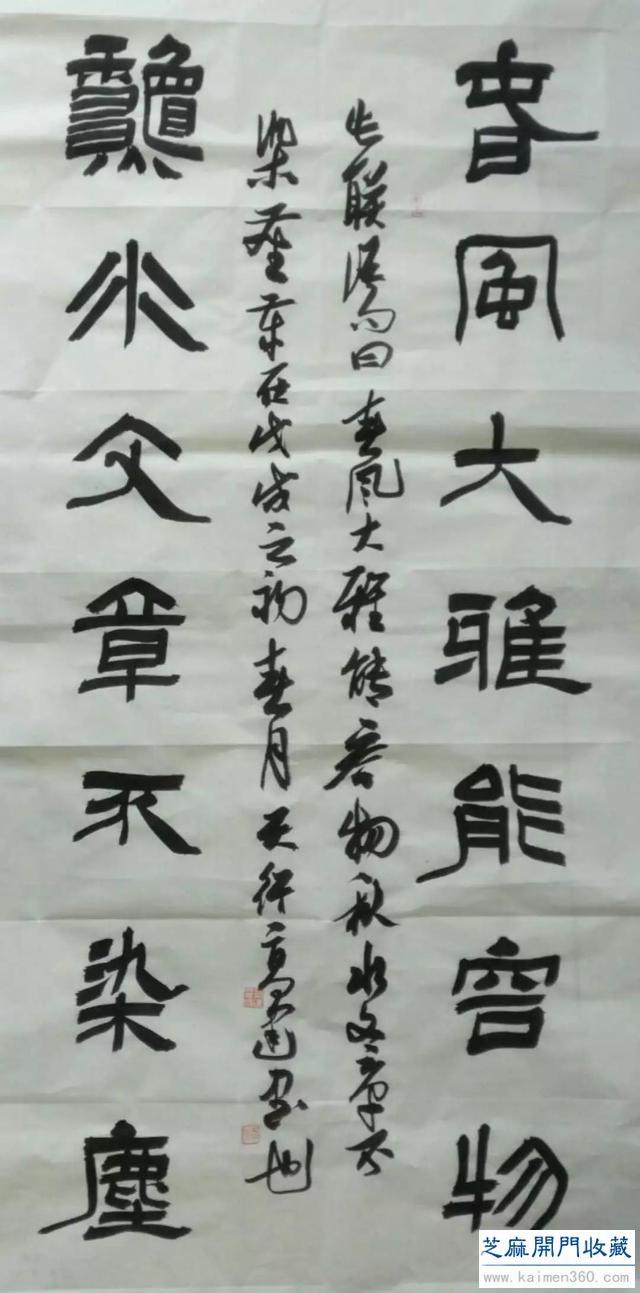 春風大雅能容物
联语句曰春风大雅能容物秋水文章不
染塵岁在戊戌之初春月天行高建书也
秋水文章不染塵
芝麻開門收藏
www.kaimen360.com